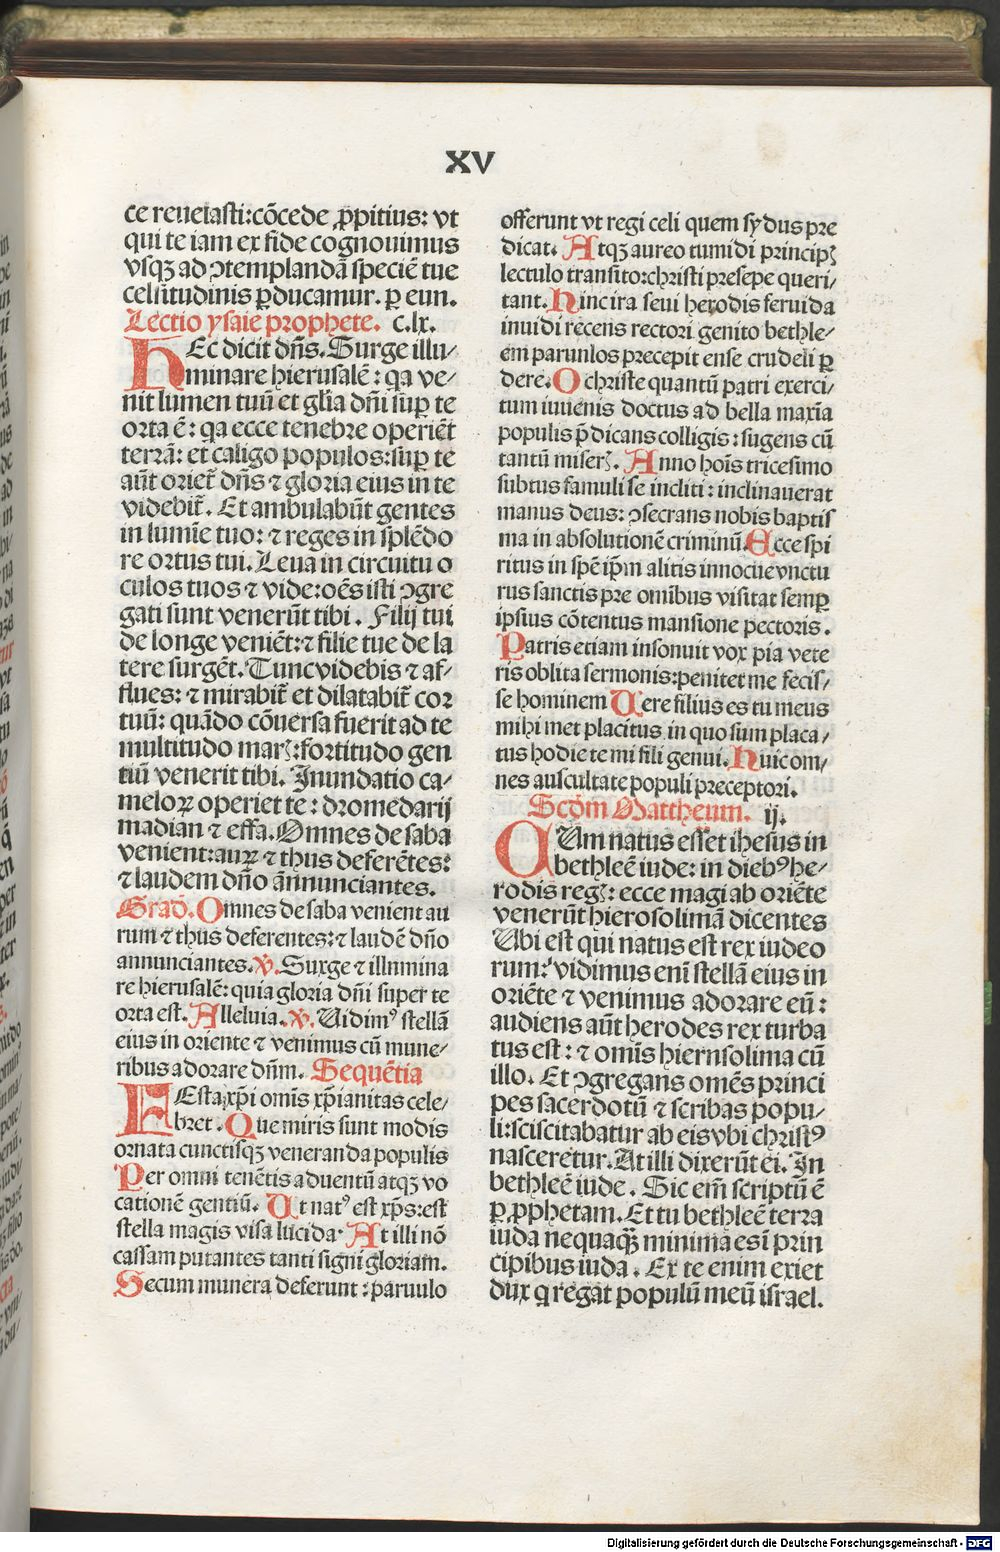 XV
ce reuelasti:cōcede ꝓpitius: vt
qui te iam ex fide cognouimus
vsqꝫ ad ↄtemplandā speciē tue
celsitudinis ꝑducamur. ꝑ eun.
Lectio ysaie prophete. c.lx.
HEc dicit dn̄s. Surge illu/
minare hierusalē: qa ve/
nit lumen tuū et glīa dn̄i suꝑ te
orta ē: qa ecce tenebre operiēt
terrā: et caligo populos:suꝑ te
aūt oriet̄ dn̄s ⁊ gloria eius in te
videbit̄. Et ambulabūt gentes
in lumīe tuo: ⁊ reges in splēdo
re ortus tui. Leua in circuitu o
culos tuos ⁊ vide:oēs isti ↄgre
gati sunt venerūt tibi. Filij tui
de longe veniēt:⁊ filie tue de la
tere surgēt. Tunc videbis ⁊ af-
flues: ⁊ mirabit̄ et dilatabit̄ cor
tuū: quādo cōuersa fuerit ad te
multitudo marꝫ:fortitudo gen
tiū venerit tibi. Inundatio ca/
meloꝝ operiet te: dromedarij
madian ⁊ effa. Omnes de saba
venient:auꝝ ⁊ thus deferētes:
⁊ laudem dn̄o ānnunciantes.
Grad̄. Omnes de saba venient au
rum ⁊ thus deferentes:⁊ laudē dn̄o
annunciantes. v. Surge ⁊ illumina
re hierusalē: quia gloria dn̄i super te
orta est. Alleluia. v. Uidimꝰ stellā
eius in oriente ⁊ venimus cū mune/
ribus adorare dn̄m. Sequētia
FEsta xp̄i omīs xp̄ianitas cele/
bret. Que miris sunt modis
ornata cunctisqꝫ veneranda populis
Per omni tenētis aduentū atqꝫ vo
cationē gentiū. Ut natꝰ est xp̄s:est
stella magis visa lucida. At illi nō
cassam putantes tanti signi gloriam.
Secum munera deferunt: paruulo
offerunt vt regi celi quem sydus pre
dicat. Atqꝫ aureo tumidi principꝫ
lectulo transito:christi presepe queri/
tant. Hinc ira seui herodis feruida
inuidi recens rectori genito bethle/
em paruulos precepit ense crudeli ꝑ
dere. O christe quantū patri exerci/
tum iuuenis doctus ad bella maxīa
populis p̄dicans colligis: sugens cū
tantū miserꝫ. Anno hoīs tricesimo
subtus famuli se incliti: inclinauerat
manus deus: ↄsecrans nobis baptis
ma in absolutionē criminū. Ecce spi
ritus in spē ip̄m alitis innocue vnctu
rus sanctis pre omībus visitat semꝑ
ipsius cōtentus mansione pectoris.
Patris etiam insonuit vox pia vete
ris oblita sermonis:penitet me fecis/
se hominem Uere filius es tu meus
mihi met placitus in quo sum placa/
tus hodie te mi fili genui. Huic om/
nes auscultate populi preceptori.
Scd̄m Mattheum. ij.
CUm natus esset ihesus in
bethleē iude: in diebꝰ he/
rodis regꝫ: ecce magi ab oriēte
venerūt hierosolimā dicentes
Ubi est qui natus est rex iudeo
rum? vidimus enī stellā eius in
oriēte ⁊ venimus adorare eū:
audiens aūt herodes rex turba
tus est: ⁊ omīs hiernsolima cū
illo. Et ↄgregans omēs princi
pes sacerdotū ⁊ scribas popu/
li:sciscitabatur ab eis vbi christꝰ
nasceretur. At illi dixerūt ei. In
bethleē iude. Sic em̄ scriptū ē
ꝑ ꝓphetam. Et tu bethleē terra
iuda nequaqꝫ̄ minima es ī prin
cipibus iuda. Ex te enim exiet
dux q regat populū meū israel.
Digitalisierung gefördert durch die Deutsche Forschungsgemeinschaft - DFG